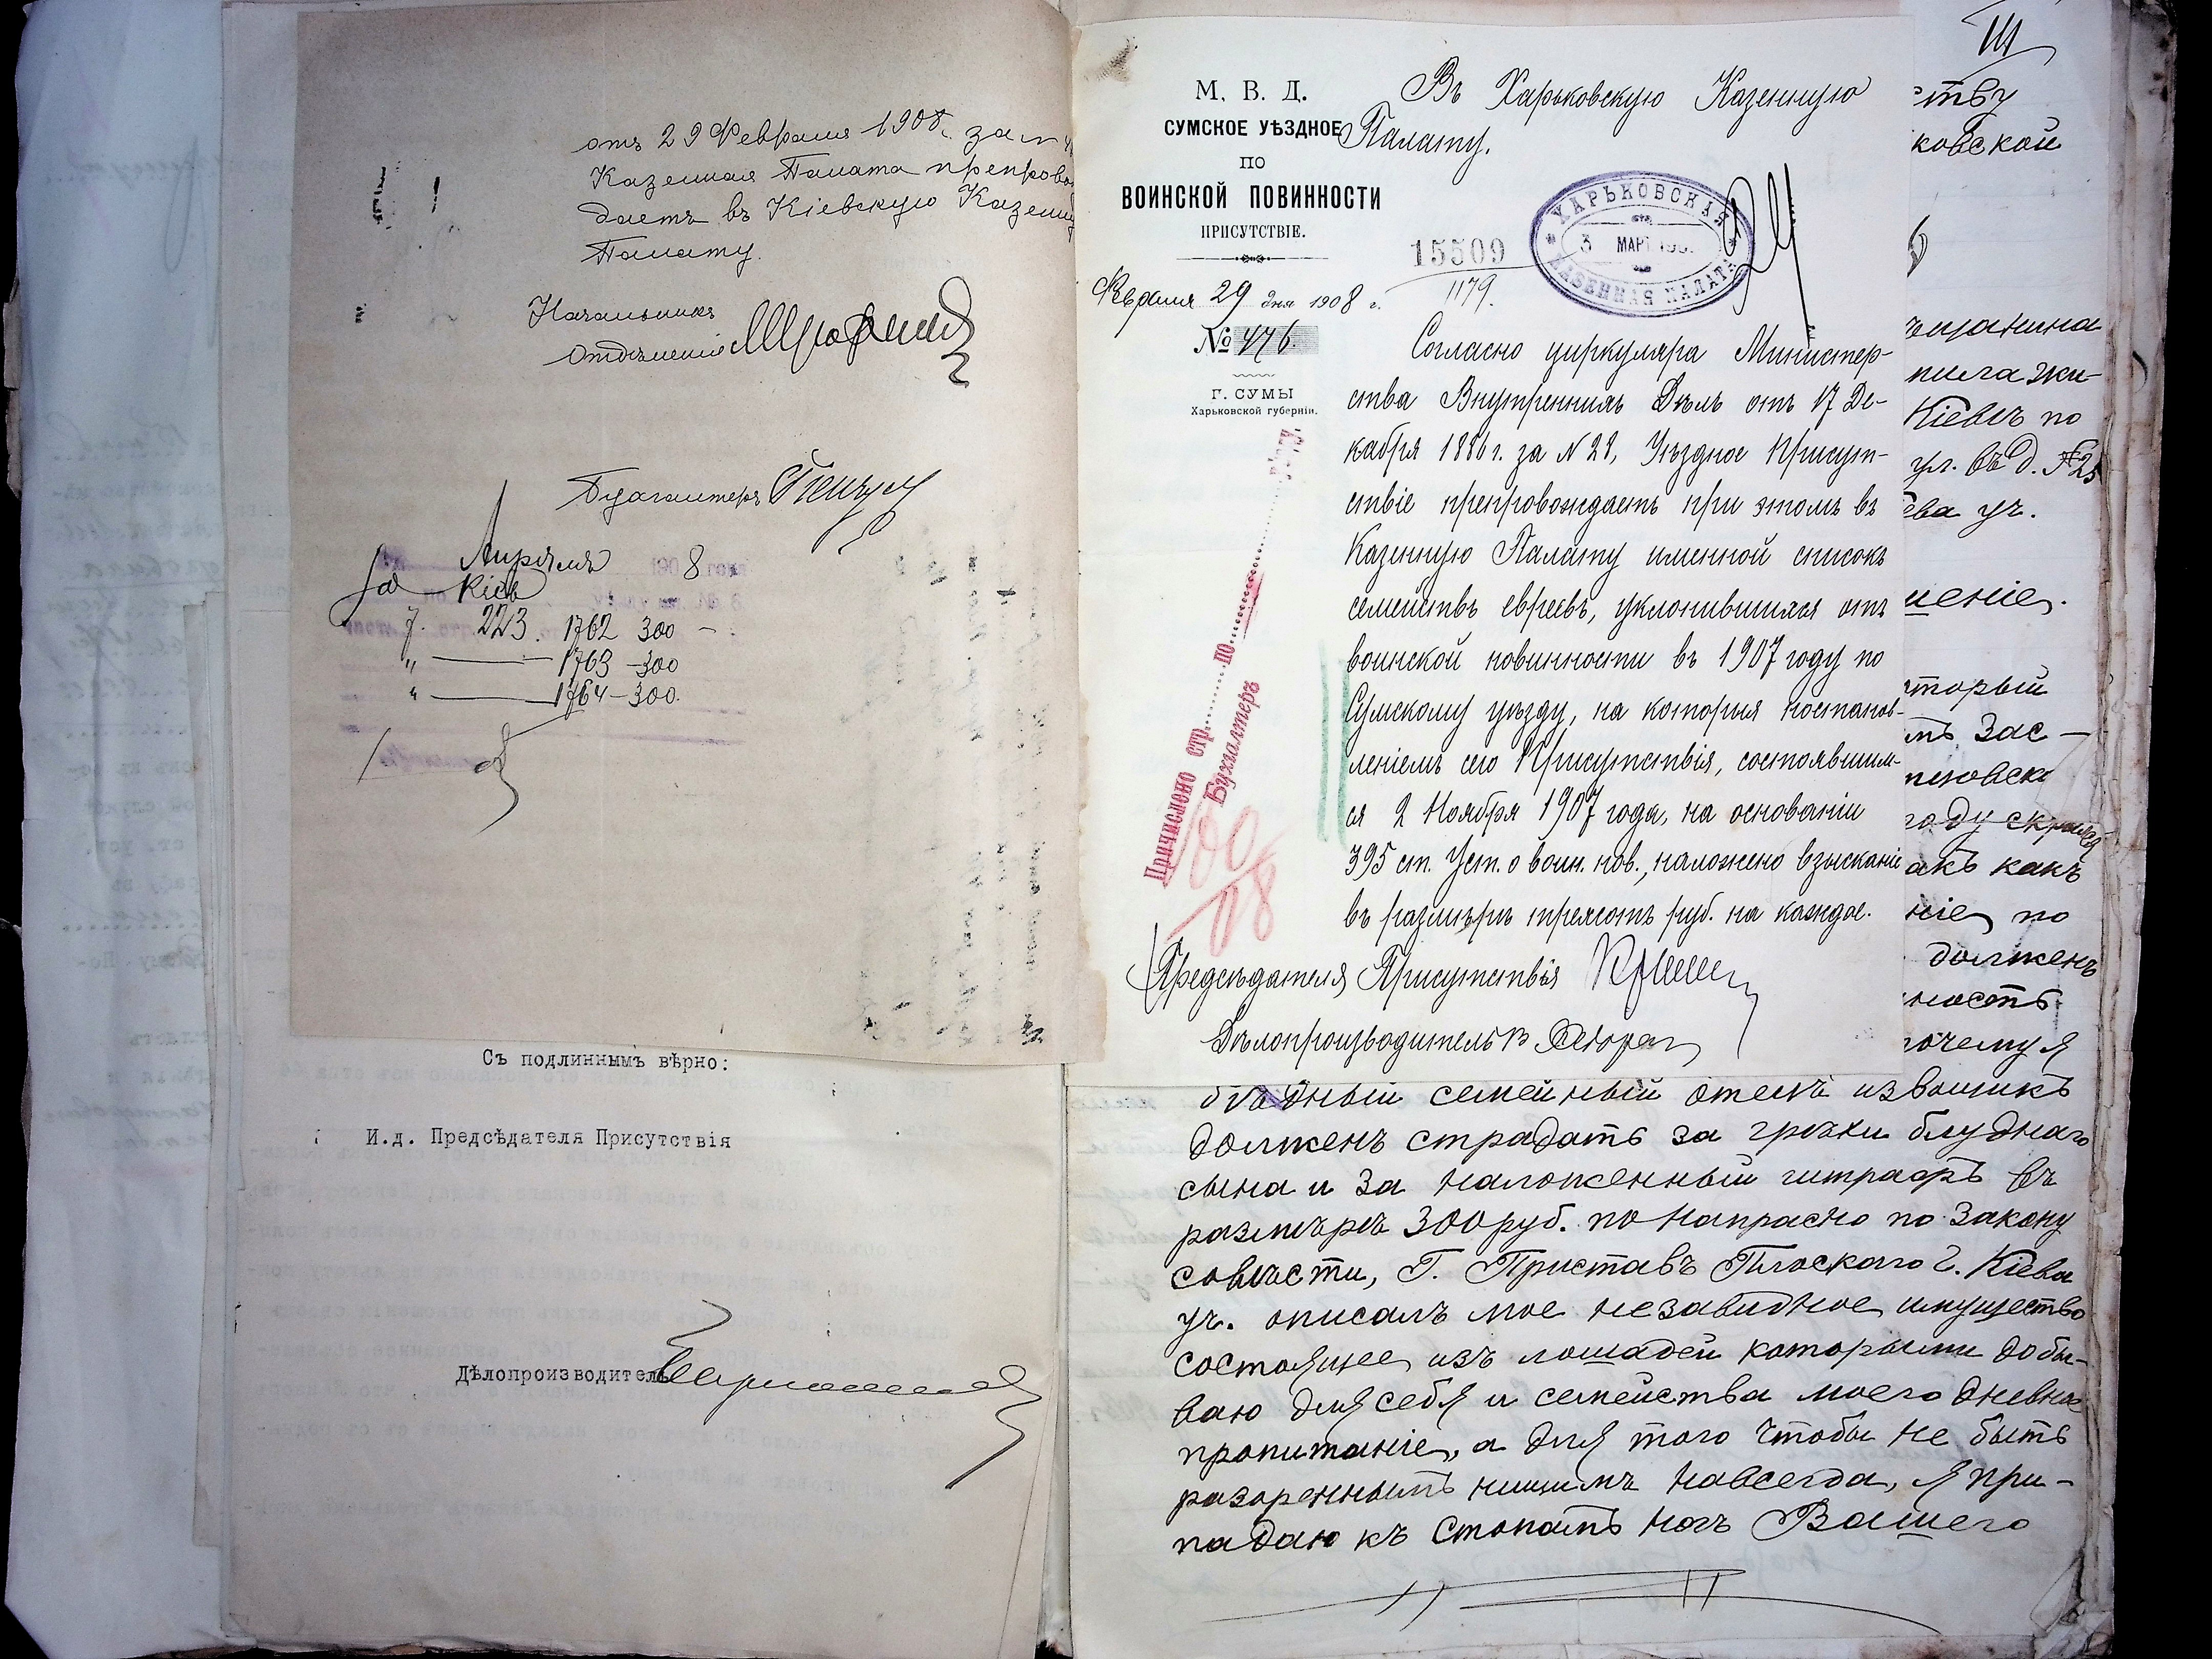 отъ 29 Февраля 1908 г. за №
Казенная Палата препрово
даетъ въ Кіевскую Казенн
Палату.
Начальникъ
Отдѣленія
Бухгалтеръ
Апрѣля 1908 года
Кіев
7. 223. 1762 300 –
" — 1763 – 300
" — 1764 – 300.
Съ подлиннымъ вѣрно:
И.д. Предсѣдателя Присутствія
Дѣлопроизводитель
М. В. Д.
СУМСКОЕ УѢЗДНОЕ
ПО
ВОИНСКОЙ ПОВИННОСТИ
ПРИСУТСТВІЕ.
Февраля 29 дня 1908 г.
№ 476.
Г. СУМЫ
Харьковской губерніи.
Въ Харьковскую Казенную
Палату.
ХАРЬКОВСКАЯ
3 МАРТ 190
КАЗЕННАЯ ПАЛАТА
15509
1179.
Причислено стр. по
Бухгалтеръ
08
Согласно циркуляра Министер-
ства Внутреннихъ Дѣлъ отъ 17 Де-
кабря 1886 г. за N 28, Уѣздное Присут-
ствіе препровождаетъ при этомъ въ
Казенную Палату именной списокъ
семействъ евреевъ, уклонившихся отъ
воинской повинности въ 1907 году по
Сумскому уѣзду, на которыя постанов-
леніемъ сего Присутствія, состоявшим-
ся 2 Ноября 1907 года, на основаніи
395 ст. Уст. о воин. пов., наложено взысканіе
въ размѣрѣ трехсотъ руб. на каждое.
Предсѣдателя Присутствія
Дѣлопроизводитель
ству
ковской
ѣщанина
Кіевѣ по
ул. въ д. № 25
ева уч.
шеніе.
торый
мъ Зас –
году скрылся
акъ какъ
ніе по
долженъ
ность
почему я
бѣдный семейный отецъ извощикъ
долженъ страдать за грѣхи блуднаго
сына и за наложенный штрафъ въ
размѣрѣ 300 руб. по напрасно по закону
совѣсти, Г. Приставъ Плоскаго г. Кіева
уч. описалъ мое незавидное имущество
состоящее изъ лошадей которыми добы-
ваю для себя и семейства моего дневное
пропитаніе, а для того чтобы не быть
разореннымъ нищимъ навсегда, я при-
падаю къ стопамъ ногъ Вашего